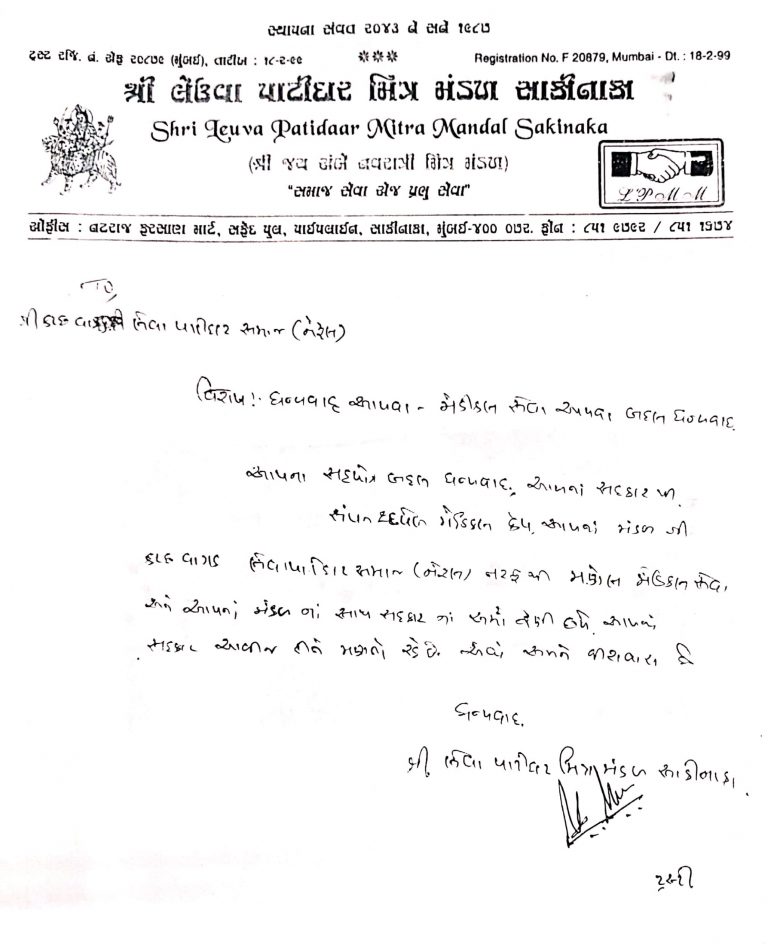 સ્થાપના સંવત ૨૦૪૩ ને સને ૧૯૮૭
ટ્રસ્ટ રજિ. નં. એફ ૨૦૮૭૯ (મુંબઈ), તારીખ : ૧૮-૨-૯૯ *** Registration No. F 20879, Mumbai - Dt. : 18-2-99
શ્રી લેઉવા પાટીદાર મિત્ર મંડળ સાકીનાકા
Shri Leuva Patidaar Mitra Mandal Sakinaka
(શ્રી જય અંબે નવરાત્રી મિત્ર મંડળ)
"સમાજ સેવા એજ પ્રભુ સેવા"
L P M M
ઓફીસ : નટરાજ ફરસાણ માર્ટ, સફેદ પુલ, પાઈપલાઈન, સાકીનાકા, મુંબઈ-૪૦૦ ૦૭૨. ફોન : ૮૫૧ ૯૭૯૨ / ૮૫૧ ૧૫૭૪
To,
શ્રી લેવા પાટીદાર સમાજ
વિષય : ધન્યવાદ આપવા - મેડીકલ સેવા આપવા બદલ ધન્યવાદ.
આપના સહયોગ બદલ ધન્યવાદ. આપનાં સહકાર થી
મેડિકલ કેમ્પ આપનાં મંડળ શ્રી
વાગડ લેવા પાટીદાર સમાજ તરફ થી મળેલ મેડિકલ સેવા
અને આપનાં મંડળ નાં સાથ સહકાર નાં અમો આપનાં
સહકાર મળતો રહેશે. એવો અમને વિશ્વાસ છે
ધન્યવાદ.
શ્રી લેવા પાટીદાર મિત્ર મંડળ સાકીનાકા.
ટ્રસ્ટી